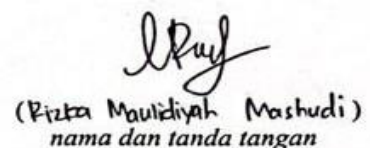 (Rizka Maulidiyah Mashudi)
nama dan tanda tangan